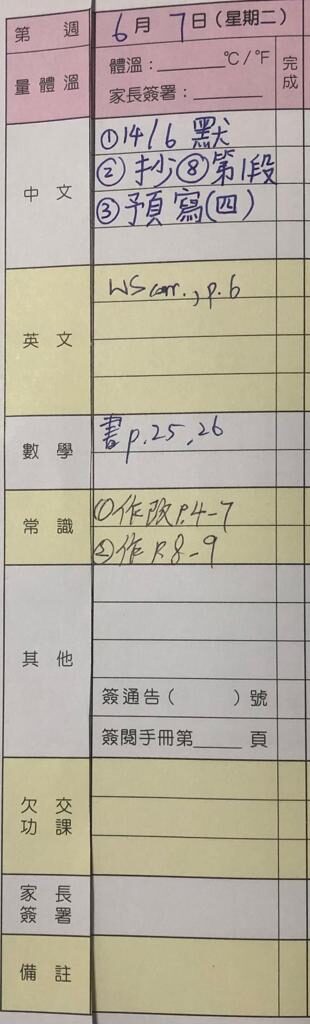 第 週 6月 7日(星期二)
量體溫 體溫:______°C/°F 完成
家長簽署:______
中文 ①14/6 默
② 抄⑧第1段
③預寫(四)
英文 WS corr., p.6
數學 書p.25,26
常識 ①作改P.4-7
②作P.8-9
其他
簽通告( )號
簽閱手冊第____頁
欠交功課
家長簽署
備註